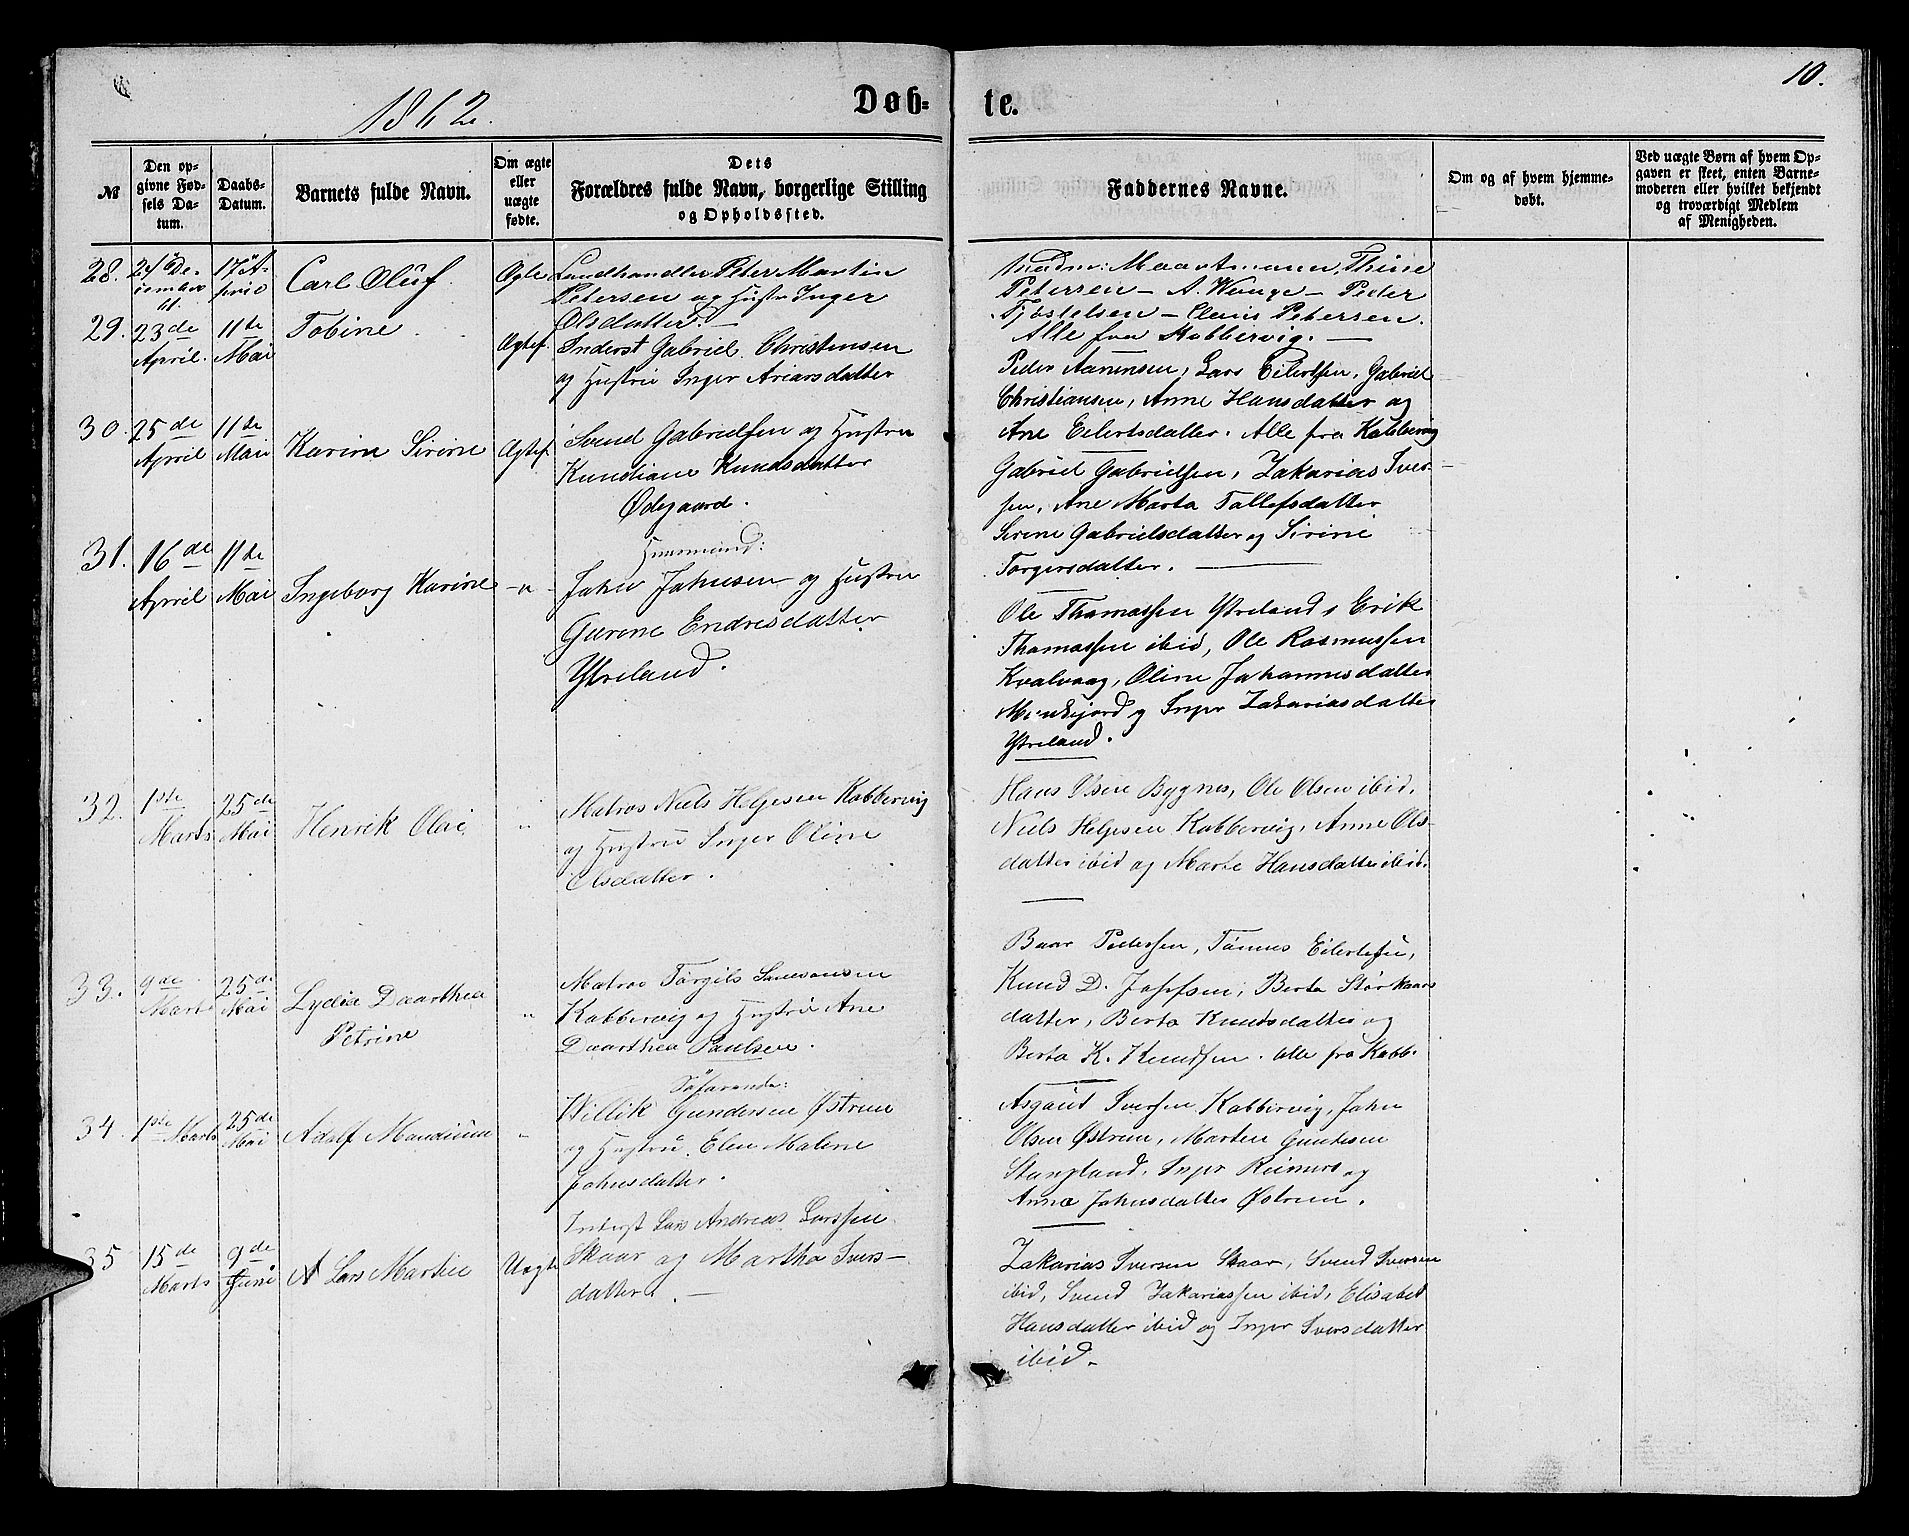 1862.
Døb-
te.
10.
№
Den op-
givne Fød-
sels Da-
tum.
Daabs-
Datum.
Barnets fulde Navn.
Om ægte
eller
uægte
fødte.
Dets
Forældres fulde Navn, borgerlige Stilling
og Opholdssted.
Faddernes Navne.
Om og af hvem hjemme-
døbt.
Ved uægte Børn af hvem Op-
gaven er skeet, enten Barne-
moderen eller hvilket bekjendt
og troværdigt Medlem
af Menigheden.
28.
24 De-
cember
61.
17 A-
pril
Carl Oluf.
Ægte
Landhandler Peter Martin
Petersen og Hustr Inger
Olsdatter. —
Thine
Petersen — A. Wenge — Peder
Tjøstelsen — Petersen.
Alle fra Kobbervig. —
29.
23de
April.
11te
Mai
Tobine.
Ægtef.
Inderst Gabriel Christensen
og Hustru Inger
Peder Lars Eilertsen, Gabriel
Christiansen, Anne Hansdatter og
Ane Eilertsdatter. Alle fra Kobbervig
30.
25de
April
11te
Mai
Karine Sirine
Ægtef.
Svend Gabrielsen og Hustru
Knudiane Knudsdatter
Ødegaard.
Gabriel Gabrielsen, Zakarias Iver-
sen, Ane Marta Tallefsdatter
Serine Gabrielsdatter og Sirine
Torgersdatter. —
31.
16de
April
11te
Mai
Ingeborg Karine
-"-
Huusmand:
John Johnsen og Hustru
Gurine Endresdatter
Ytreland.
Ole Thomassen Ytreland, Erik
Thomassen ibid, Ole Rasmussen
Kvalvaag, Oline Johannesdatter
og Inger Zakariasdatter
Ytreland.
32.
1ste
Marts
25de
Mai
Henrik Olai
"
Matros Niels Helgesen Kobbervig
og Hustru Inger Oline
Olsdatter.
Hans Olsen Bygnes, Ole Olsen ibid,
Niels Helgesen Kobbervig, Anne Ols-
datter ibid og Marte Hansdatter ibid.
33.
9de
Marts
25de
Mai
Lydia Daarthea
Petrine
"
Matros Torgils
Kobbervig og Hustru Ane
Daarthea Paulsen.
Baar Pedersen, Tønnes Eilertsen,
Knud D. Berta Storkaars
datter, Berta Knudsdatter og
Berta K. Knudsen. alle fra Kobb.
34.
1ste Marts
25de
Mai
Adolf Mandium
"
Søfarende:
Willik Gundersen Østrem
og Hustru Elen Malene
Johnsdatter.
Asgaut Iversen Kobbervig, John
Olsen Østrem, Marten
Stangland, Inger Reimers og
Anna Johnsdatter Østrem.
35
15de
Marts
9de
Juni
A Lars Martin
Uægte
Inderst Lars Andreas Larssen
Skaar og Martha Ivers-
datter. —
Zakarias Iversen Skaar, Svend Iversen
ibid, Svend Zakariassen ibid, Elisabet
Hansdatter ibid og Inger Iversdatter
ibid.